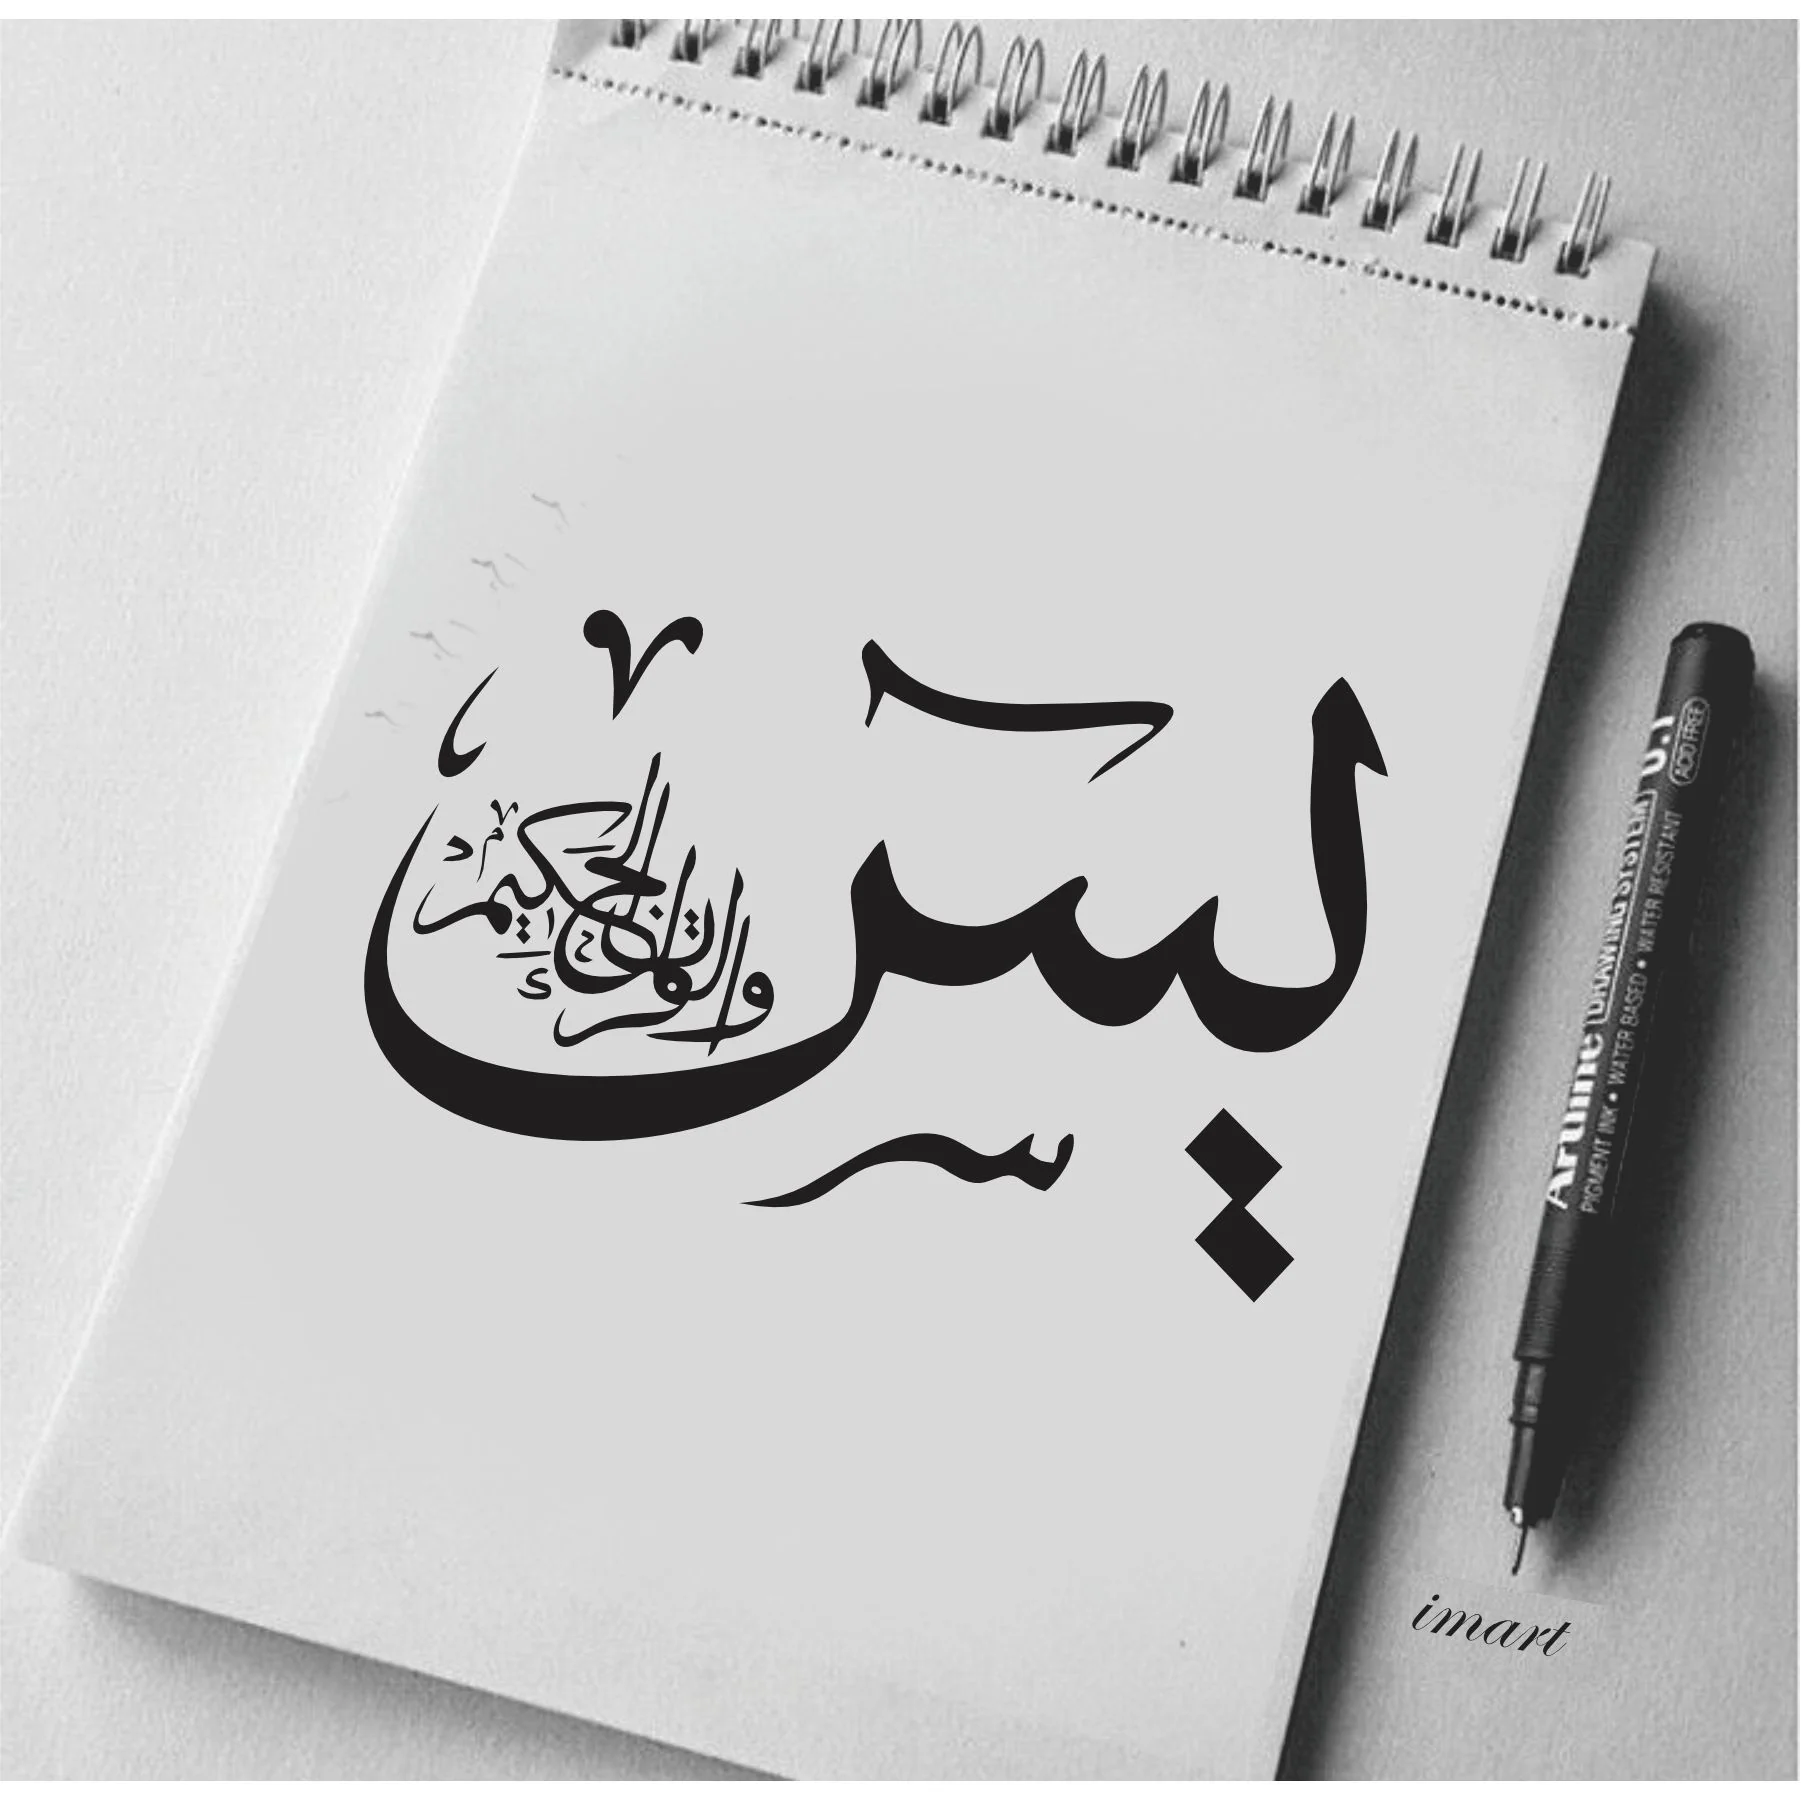 يس
والقرآن الحكيم
Artline DRAWING SYSTEM 0.1
ACID FREE
PIGMENT INK • WATER BASED • WATER RESISTANT
imart